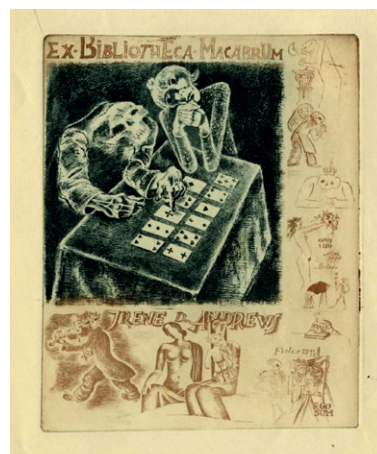 EX·BIBLIOTHECA·MACABRUM
IRENE D. ANDREWS
EGO
SUM